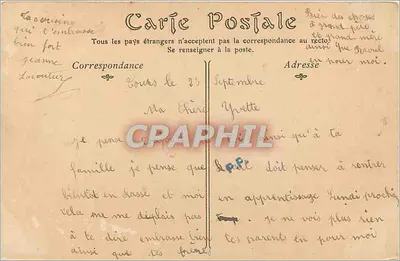 Carte Postale
Tous les pays étrangers n'acceptent pas la correspondance au recto
Se renseigner à la poste.
Correspondance
Adresse
Ta cousine
qui t'embrasse
bien fort
Jeanne
Bien des choses
à grand père
et grand mère
ainsi que
en pour moi.
Tours le 23 Septembre
Ma Chère Yvette
je pense ainsi qu'à ta
famille je pense que doit penser à rentrer
bientôt en classe et moi en apprentissage Lundi prochain
cela me me déplais pas je ne vois plus rien
à te dire embrasse bien tes parents en pour moi
ainsi que tes frères
CPAPHIL
P.P.